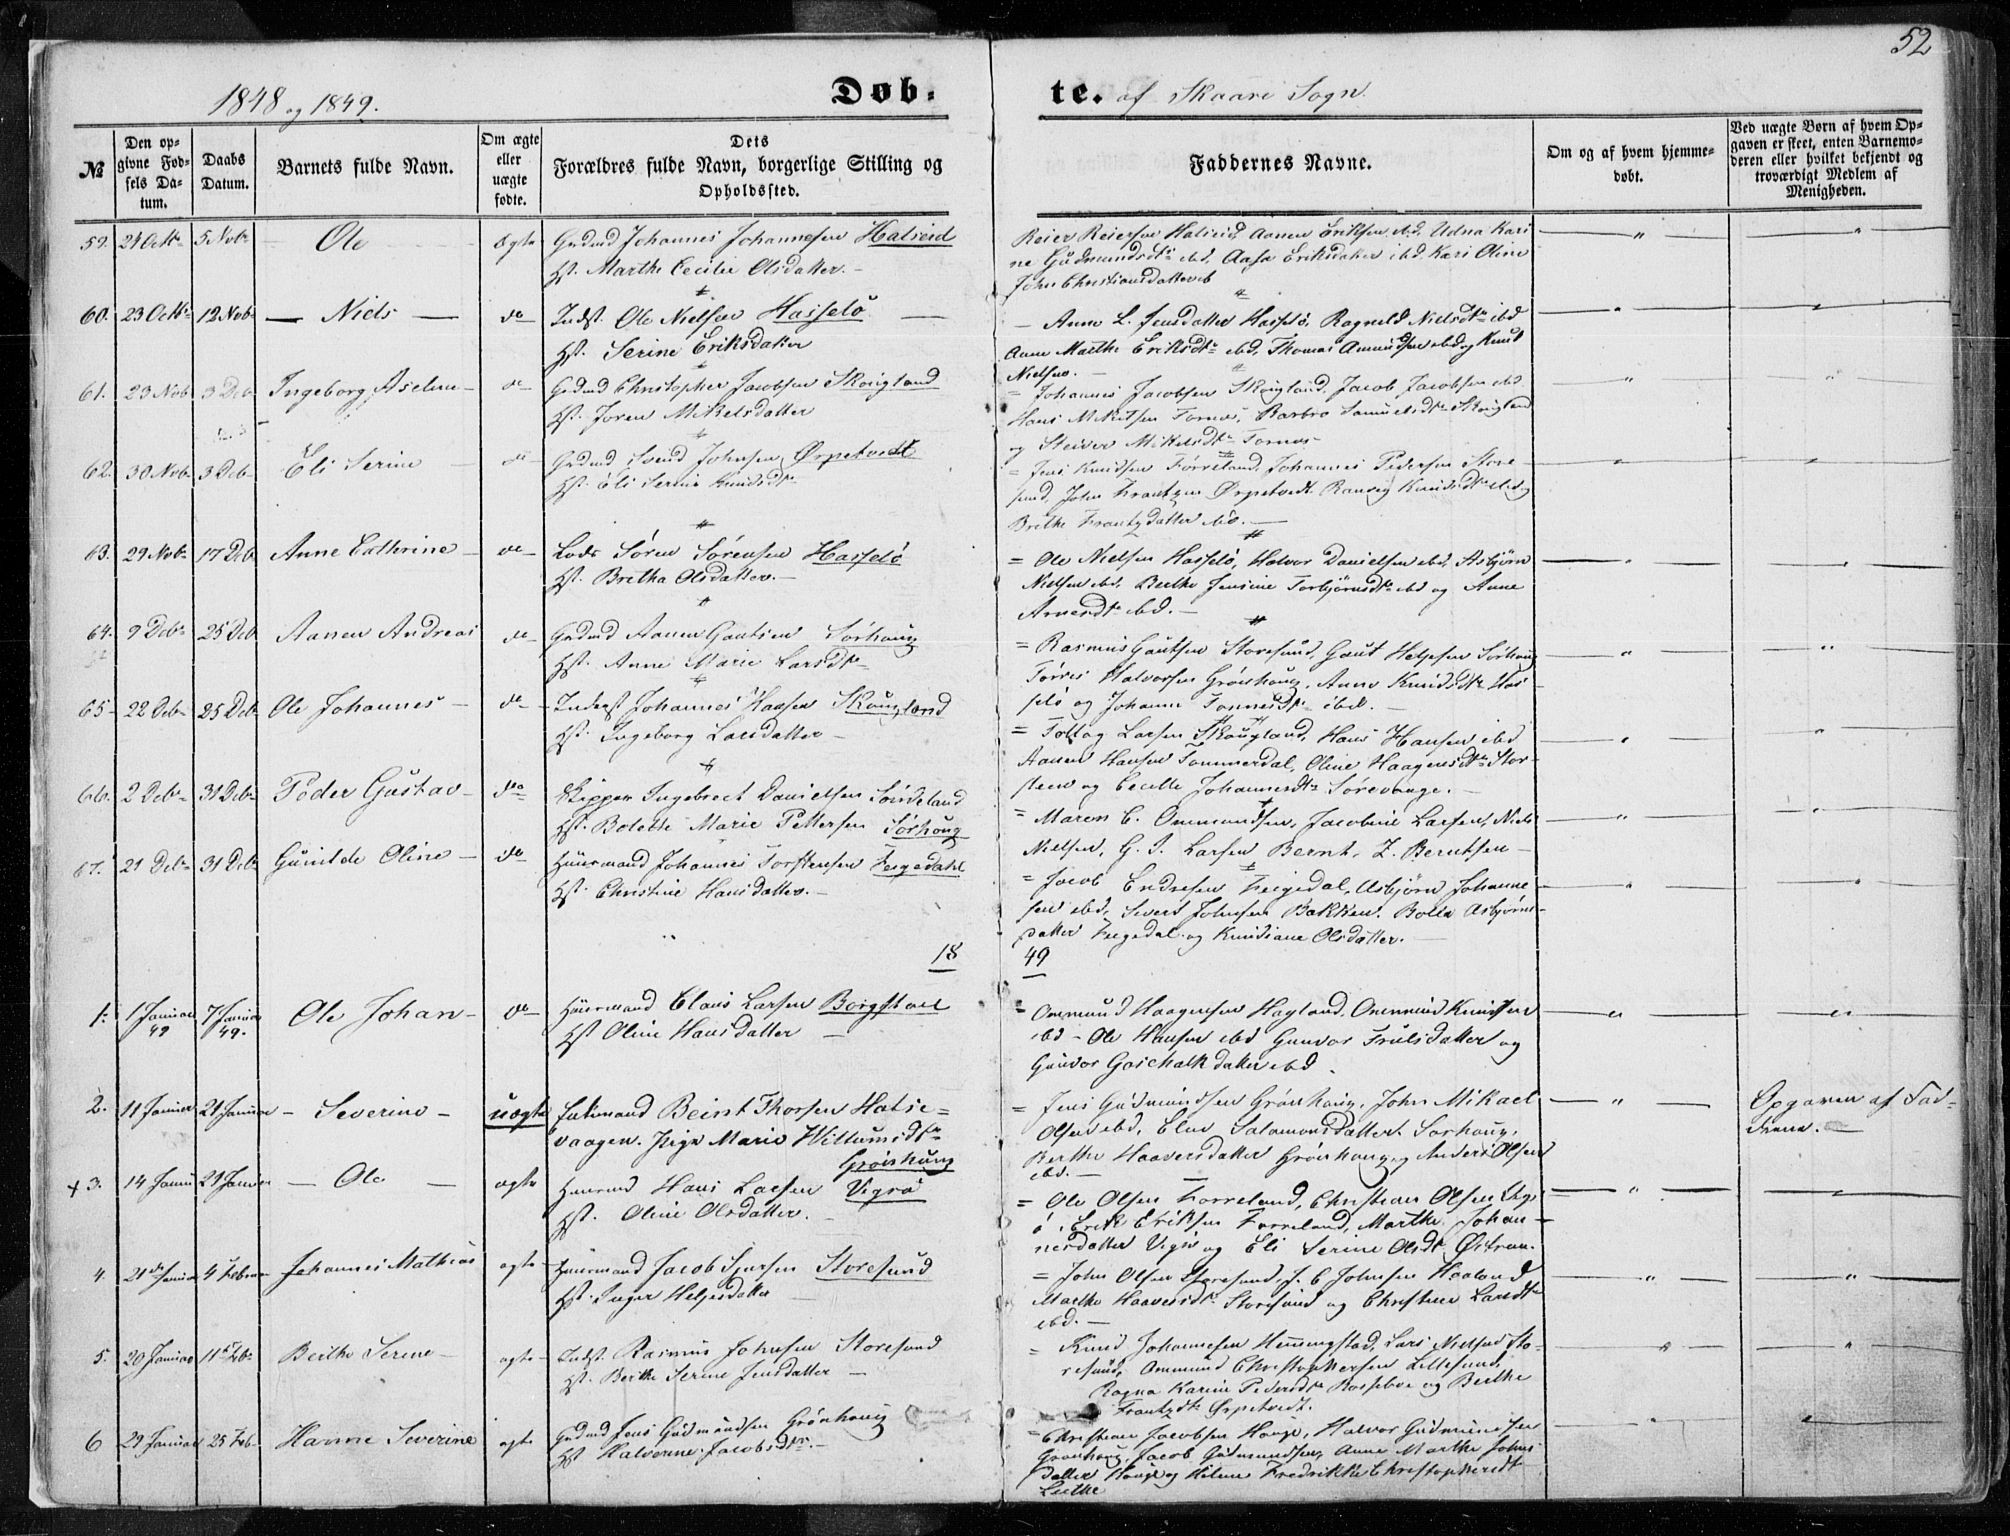 52
1848 og 1849.
Døb-
te. af Skaare Sogn.
№
Den op-
givne Fød-
sels Da-
tum.
Daabs
Datum.
Barnets fulde Navn.
Om ægte
eller
uægte
fødte.
Dets
Forældres fulde Navn, borgerlige Stilling og
Opholdssted.
Faddernes Navne.
Om og af hvem hjemme-
døbt.
Ved uægte Børn af hvem Op-
gaven er skeet, enten Barnemo-
deren eller hvilket bekjendt og
troværdigt Medlem af
Menigheden.
59. 21 Octr 5 Nobr Ole ægte Grdmd Johannes Johannesen Hatseid
Hst. Marthe Cecilie Olsdatter.
Reier Reiersen Hatseid, Aanen Eriksen ibd, Udna Kari
ne Gudmundsdtr ibd, Aasa Eriksdatter ibd. Kari Oline
Johs Christiansdatter ib
60. 23 Octr 12 Nobr Niels do Indst. Ole Nielsen Hasselø
Hst. Serine Eriksdatter
Anne L. Jensdatter Hasselø, Ragnild Nielsdtr ibd
Anne Marthe Eriksdtr ibd, Thomas Amundsen ibd og Knud
Nielsen.
61. 23 Nob 3 Deb Ingeborg Aseline do Grdmd Christopher Jacobsen Skougland
Hst. Joren Mikelsdatter
= Johannes Jacobsen Skougland, Jacob Jacobsen ibd
Hans Mikelsen Fornes, Barbro Samuelsdtr Skougland
og Mikelsdtr Fornes
62. 30 Nob 3 Deb Eli Serine do Grdmd Svend Johnsen Ørpetvedt
Hst. Eli Serine Knudsdtr
= Jens Knudsen Førreland, Johannes Pedersen Store
sund, John Frantzen Ørpetvedt Ranveig Knudsdtr ibd og
Brithe Frantzdatter ibd.
63. 29 Nobr 17 Deb Anne Cathrine do Lods Søren Sørensen Hasselø
Hst. Bretha Olsdatter.
= Ole Nielsen Hasselø, Halvor Danielsen ibd, Asbjørn
Nielsen ibd, Berthe Jensine Torbjørnsdtr ibd og Anne
Arnesdtr ibd.
64. 9 Debr 25 Deb Aanen Andreas do Grdmd Aanen Gautsen Sørhoug
Hst. Anne Marie Larsdtr
= Rasmus Gautsen Storesund, Gaut Helgesen Sørhoug
Tørres Halvorsen Grønhoug, Anne Knudsdtr Has
selø og Johanne Tønnesdtr ibd.
65 22 Debr 25 Deb Ole Johannes do Inderst Johannes Hansen Skougland
Hst. Ingeborg Larsdatter
= Tollag Larsen Skougland, Hans Hansen ibd
Aanen Hansen Tommerdal, Oline Haagensdtr Stor-
steen og Cecilie Johannesdtr Sørevaage.
66. 2 Debr 31 Debr Peder Gustav do Skipper Ingebrect Danielsen Sørdeland
Hst. Bolette Marie Pettersen Sørhoug
= Maren E. Ommundsen, Jacobine Larsen, Niels
Nielsen, G. S. Larsen Bernt Z. Berntsen
67. 21 Debr 31 Debr Gunilde Oline do Huusmand Johannes Torstensen Feigedahl
Hst. Christine Hansdatter.
= Jacob Endresen Feigedal, Asbjørn Johanne
sen ibd, Sivert Johnsen Bakken, Bolla Asbjørns-
datter Feigedal og Knudiane Olsdatter.
18 49
1. 1 Januar 49 7 Januar 49. Ole Johan do Huusmand Claus Larsen Borgstøel
Hst Oline Hansdatter
= Ommund Haagensen Hagland, Ommund Knudsen
ibd - Ole Hansen ibd Gunvor Frulsdatter og
Gunvor Goschalkdatter ibd.
2. 11 Januar 21 Januar Severine uægte Enkemand Beint Thorsen Hatse=
vaagen. Pige Marie Willumsdtr
Grønhoug
= Jens Gudmundsen Grønhoug, John Mikael
Olsen ibd, Elen Salamonsdatter Sørhoug,
Berthe Haaversdatter Grønhoug og Anders Olsen
ibd.
Opgaven af Fad-
derne.
+ 3. 14 Januar 21 Januar Ole ægte Huusmd Hans Larsen Vigrø
Hst. Oline Olsdatter.
= Ole Olsen Førreland, Christian Olsen Vigr
ø, Erik Eriksen Førreland, Marthe Johan-
nesdatter Vigrø og Eli Serine Olsdtr Østrem.
4. 21de Januar 4 Februar Johannes Mathias ægte Huusmand Jacob Sjursen Storesund
Hst. Inger Helgesdatter
= John Olsen Storesund, J. C Johnsen Haaland
Marthe Haaversdtr Storesund og Christine Larsdtr
ibd.
5. 20 Januar 11te Febr Berthe Serine ægte Indst. Rasmus Johnsen Storesund
Hst. Berthe Serine Jensdatter
= Knud Johannesen Hemmingstad, Lars Nielsen Sto-
resund, Ommund Christophersen Lillesund,
Ragna Karine Pedersdtr Rossebøe og Berthe
Frantzdtr Ørpetvedt.
6 29 Januar 25 Feb. Hanne Severine ægte Grdmd Jens Gudmundsen Grønhoug
Hst Halvorine Jacobsdtr.
= Christian Jacobsen Houge, Halvor Gudmundsen
Grønhoug, Jacob Gudmundsen, Anne Marthe Johns
datter Houge og Helene Fredrikke Christophersdtr